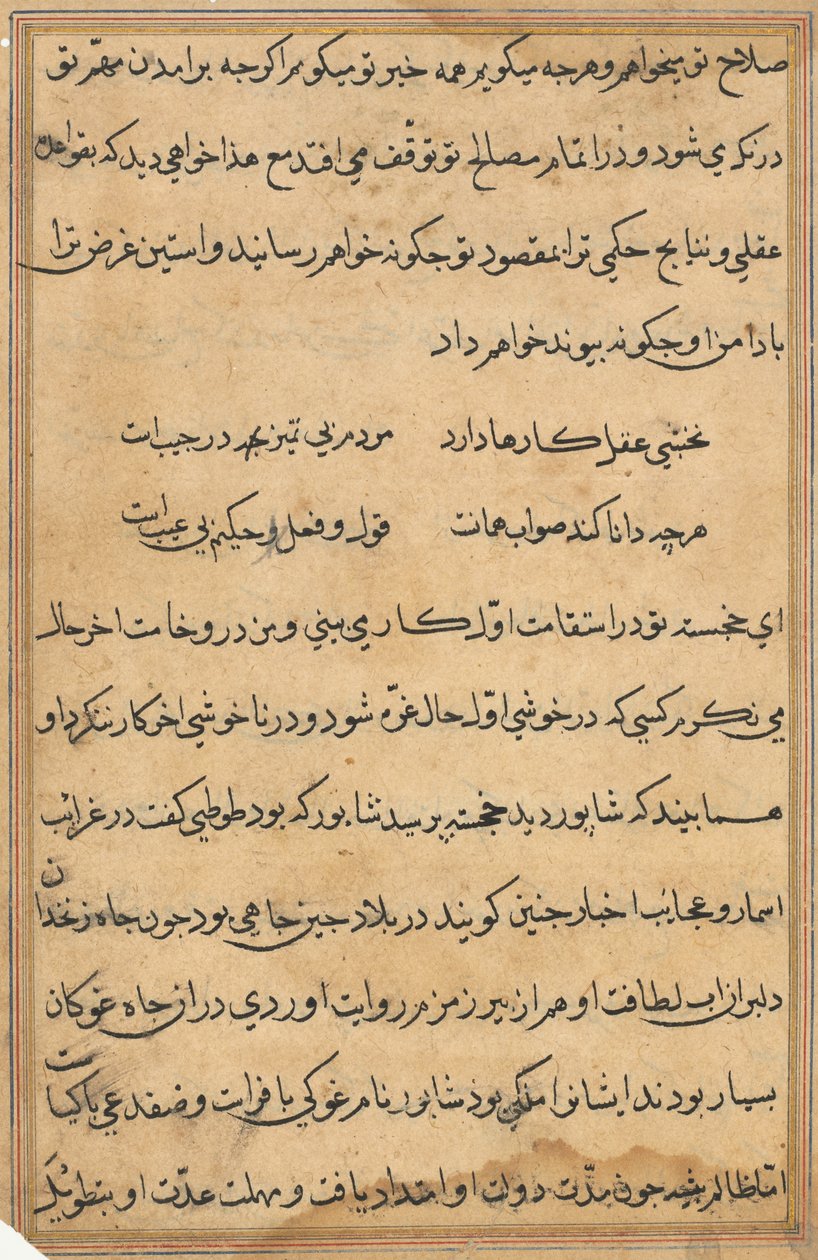 صلاح تو میخواهم و هرجه میکویم همه خیر تو میکویم اکرجه برامدن مهمّ تو
درنکی می شود و در اتمام مصالح تو توقّف می افتد مع هذا خواهی دید که بقواعد
عقلی و نتایج حکمی ترا بمقصود تو جکونه خواهم رسانید و استین غرض ترا
با دامن او جکونه پیوند خواهم داد
نخشبی عقل کارها دارد مردم بی تمیز در جیب است
هرچه دانا کند صواب همانست قول و فعل حکیم بی عیب است
ای خجسته تو در استقامت اوّل کار می بینی و من در وخامت اخر حال
می نکرم کسی که در خوشی اوّل حال غرّه شود و در ناخوشی اخر کار ننکرد او
همـا بیند که شاپور دید خجسته پرسید شاپور که بود طوطی کفت در غرائب
اسمار و عجایب اخبار جنین کویند در بلاد جین جاهی بود جون جاه زنخدان
دلبران اب لطافت او هم از بیر زمزم روایت اوردی در ان جاه غوکان
بسیار بودند ایشانرا ملکی بود شاپور نام غوکی با فراست و ضفدعی با کیاست
امّا ظالم پیشه جون مدّت دولت او امتداد یافت و مهلت عدّت او بتطویل